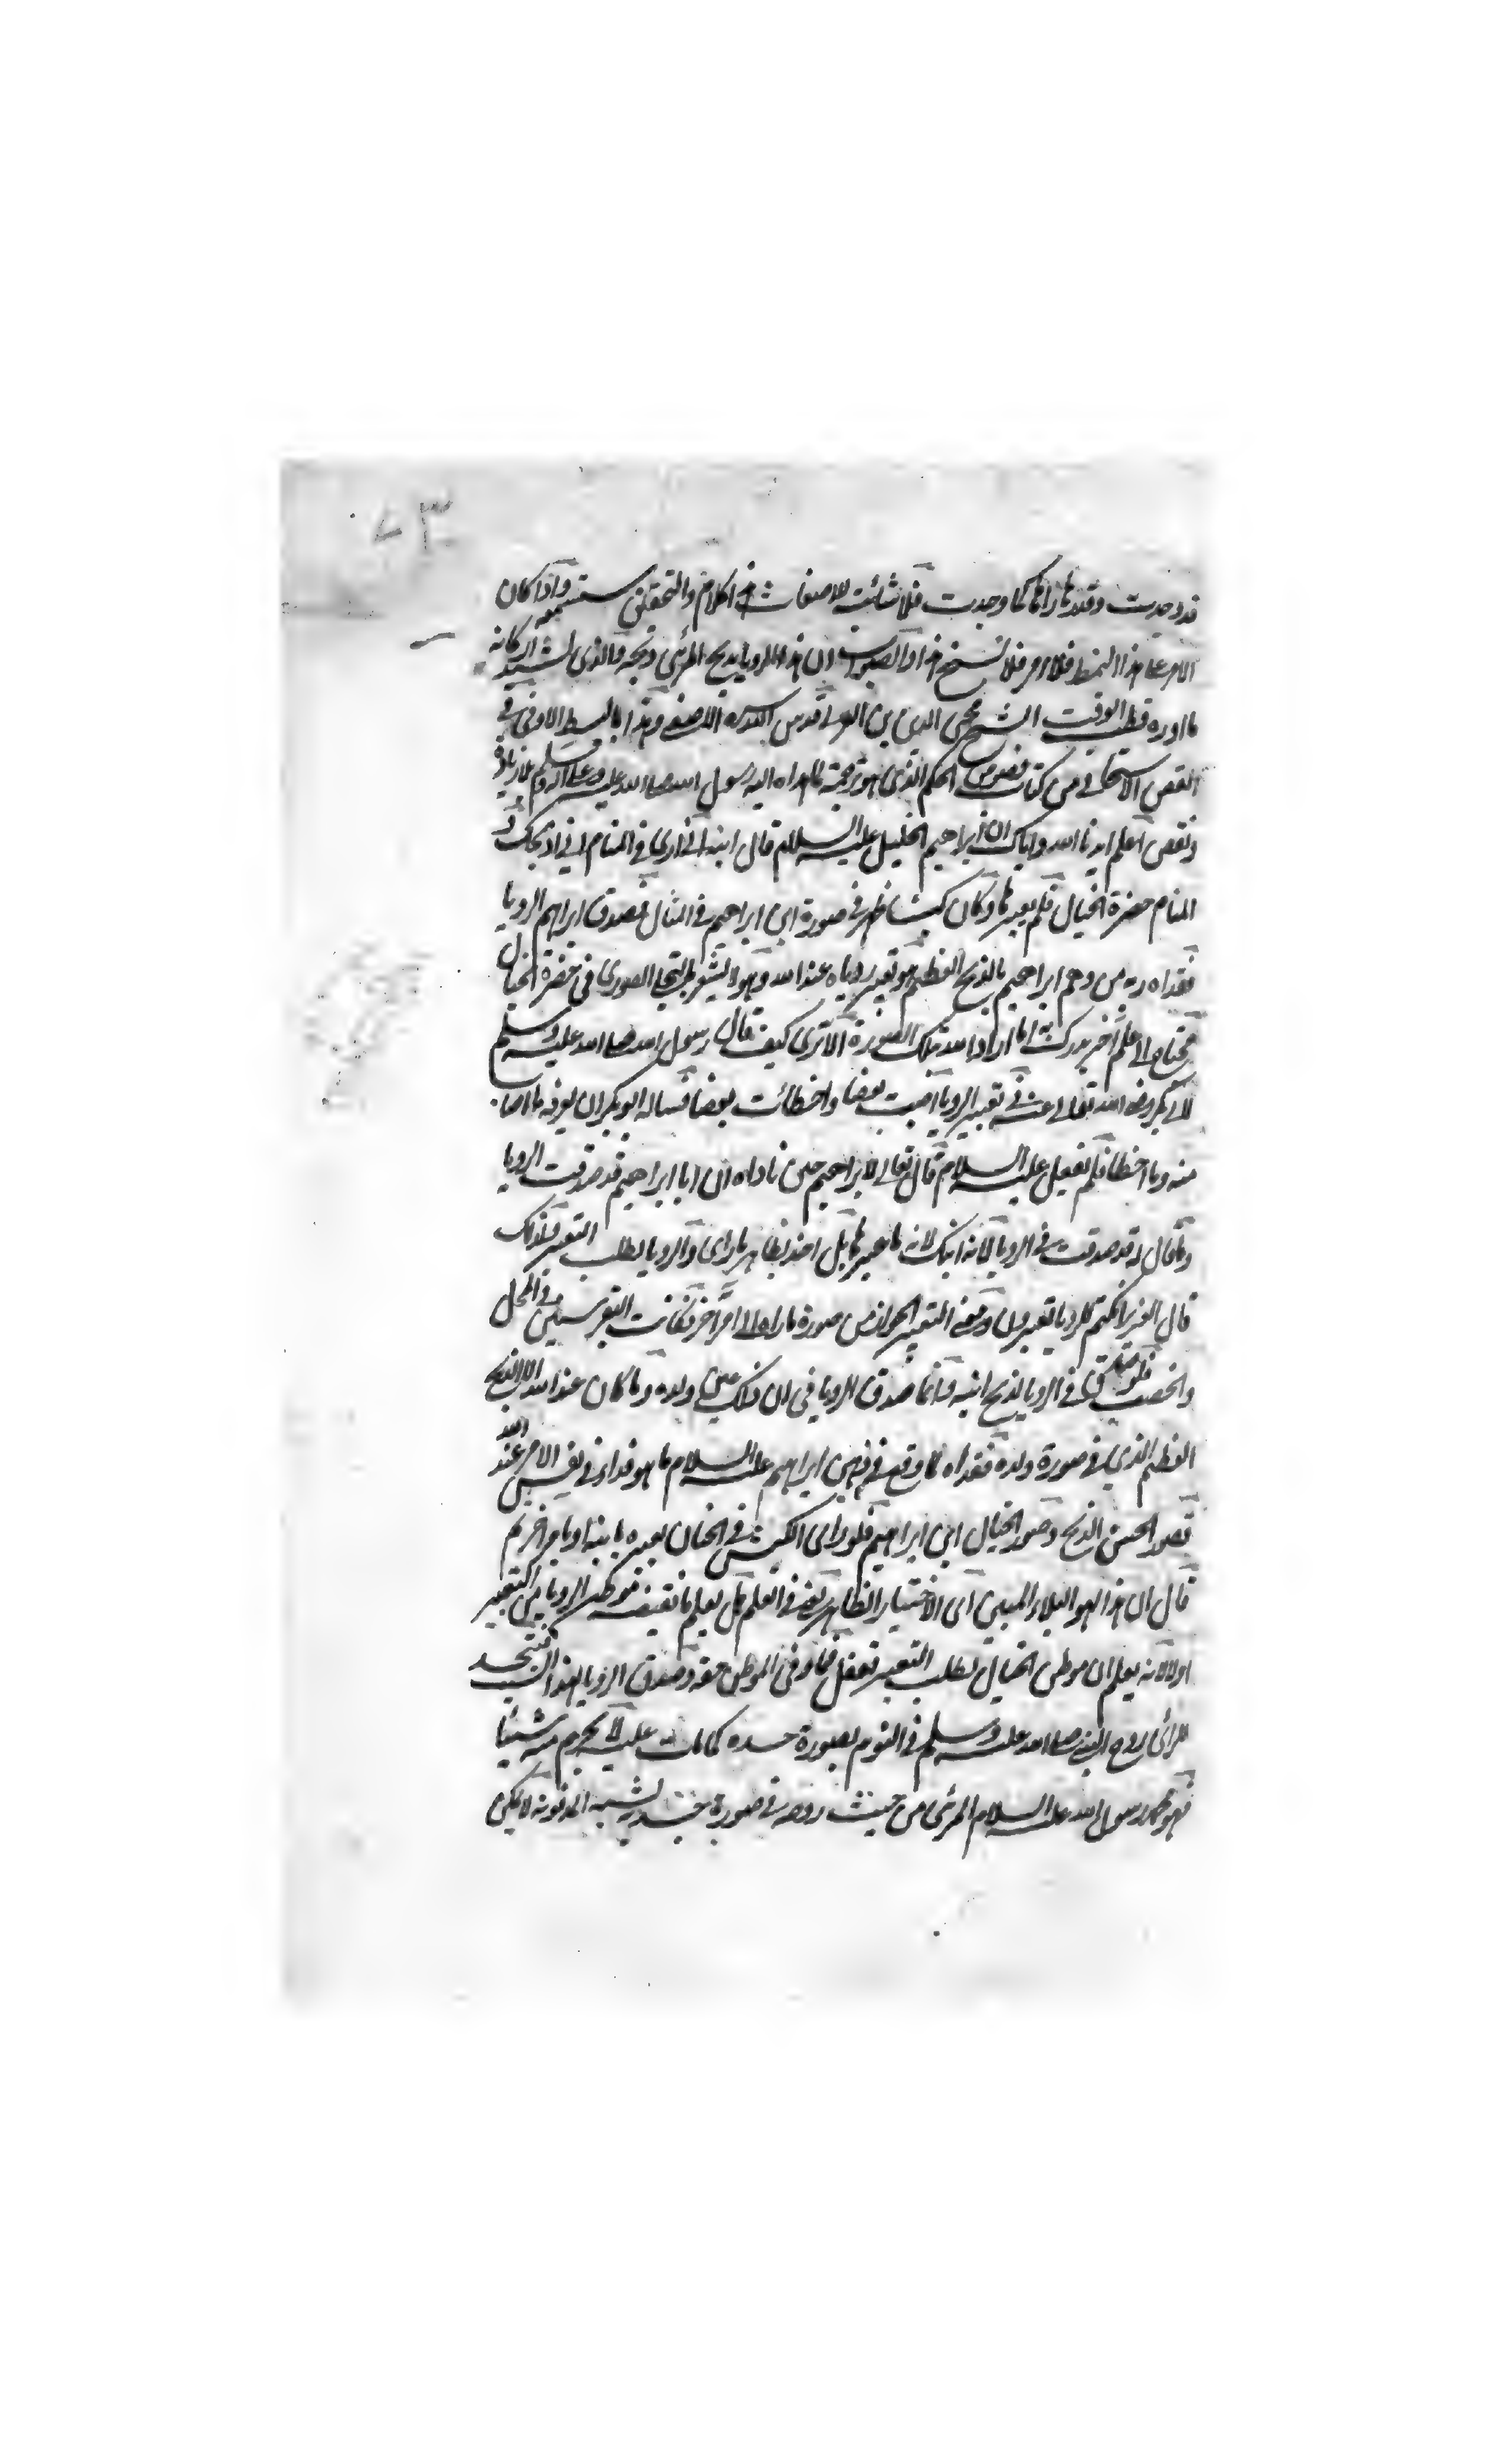 ٧٣
قد وجدت وقد رها كما وجدت فلا شائبة للاضغاث في الكلام والتحقيق ستسمعه واذا كان
الامر على هذا النمط فلا امر فلا نسخ هذا والصواب ان هذا الرويا بذبح المرئي ذبحه والذي لشيد اركانه
ما اورده قطب الوقت الشيخ محيي الدين بن العربي قدس الله سره الاصفى وهذا بالبسط الاوفى في
الفص الاسحاقي من كتاب فصوص الحكم الذي هو ترجمة لما هداه اليه رسول الله صلى الله عليه وعلى اله وسلم بلا زيادة
ونقص اعلم ايدنا الله واياك ان ابراهيم الخليل عليه السلام قال لابنه اني ارى في المنام اني اذبحك و
المنام حضرة الخيال فلم يعبرها وكان كبشا ظهر في صورة ابن ابراهيم في المنال فصدق ابراهيم الرويا
ففداه ربه من وهم ابراهيم بالذبح العظيم هو تعبير روياه عند الله وهو لا يشعر فالتجلي الصوري في حضرة الخيال
محتاج الى علم آخر يدرك به ما اراد الله بتلك الصورة الا ترى كيف قال رسول الله صلى الله عليه وسلم
لابي بكر رضي الله تعالى عنه في تعبير الرويا اصبت بعضا واخطأت بعضا فساله ابو بكر ان يعرفه ما اصاب
منه وما اخطا فلم يفعل عليه السلام قال تعالى لابراهيم حين ناداه ان يا ابراهيم قد صدقت الرويا
وما قال له قد صدقت في الرويا لانه ابنك لانه ما عبرها بل اخذ بظاهر ما راى والرويا يطلب التعبير ولذلك
قال العزيز ان كنتم للرويا تعبرون ومعنى التعبير الجواز من صورة ما راه الى امر آخر فكانت البقر سنين في المحل
والخصب فلو صدق في الرويا لذبح ابنه وانما صدق الرويا في ان ذلك عين ولده وما كان عند الله الا الذبح
العظيم الذي في صورة ولده ففداه لما وقع في ذهن ابراهيم عليه السلام ما هو فداء في نفس الامر عند الله
فصور الحس الذبح وصور الخيال ابن ابراهيم فلو راى الكبش في الخيال لعبره بابنه او بامر آخر ثم
قال ان هذا لهو البلاء المبين اى الاختبار الظاهر يعنى في العلم هل يعلم ما تقيضه موطن الرويا من التعبير
او لا لانه يعلم ان موطن الخيال يطلب التعبير فغفل فما وفى الموطن حقه وصدق الرويا لهذا السبب فتتجسد
للرائي روح النبي صلى الله عليه وسلم في النوم بصورة جسده كما مات عليه لا يخرم منه شيئا
فهو محمد رسول الله عليه السلام المرئي من حيث روحه في صورة جسدية تشبه المدفونة لا يمكن